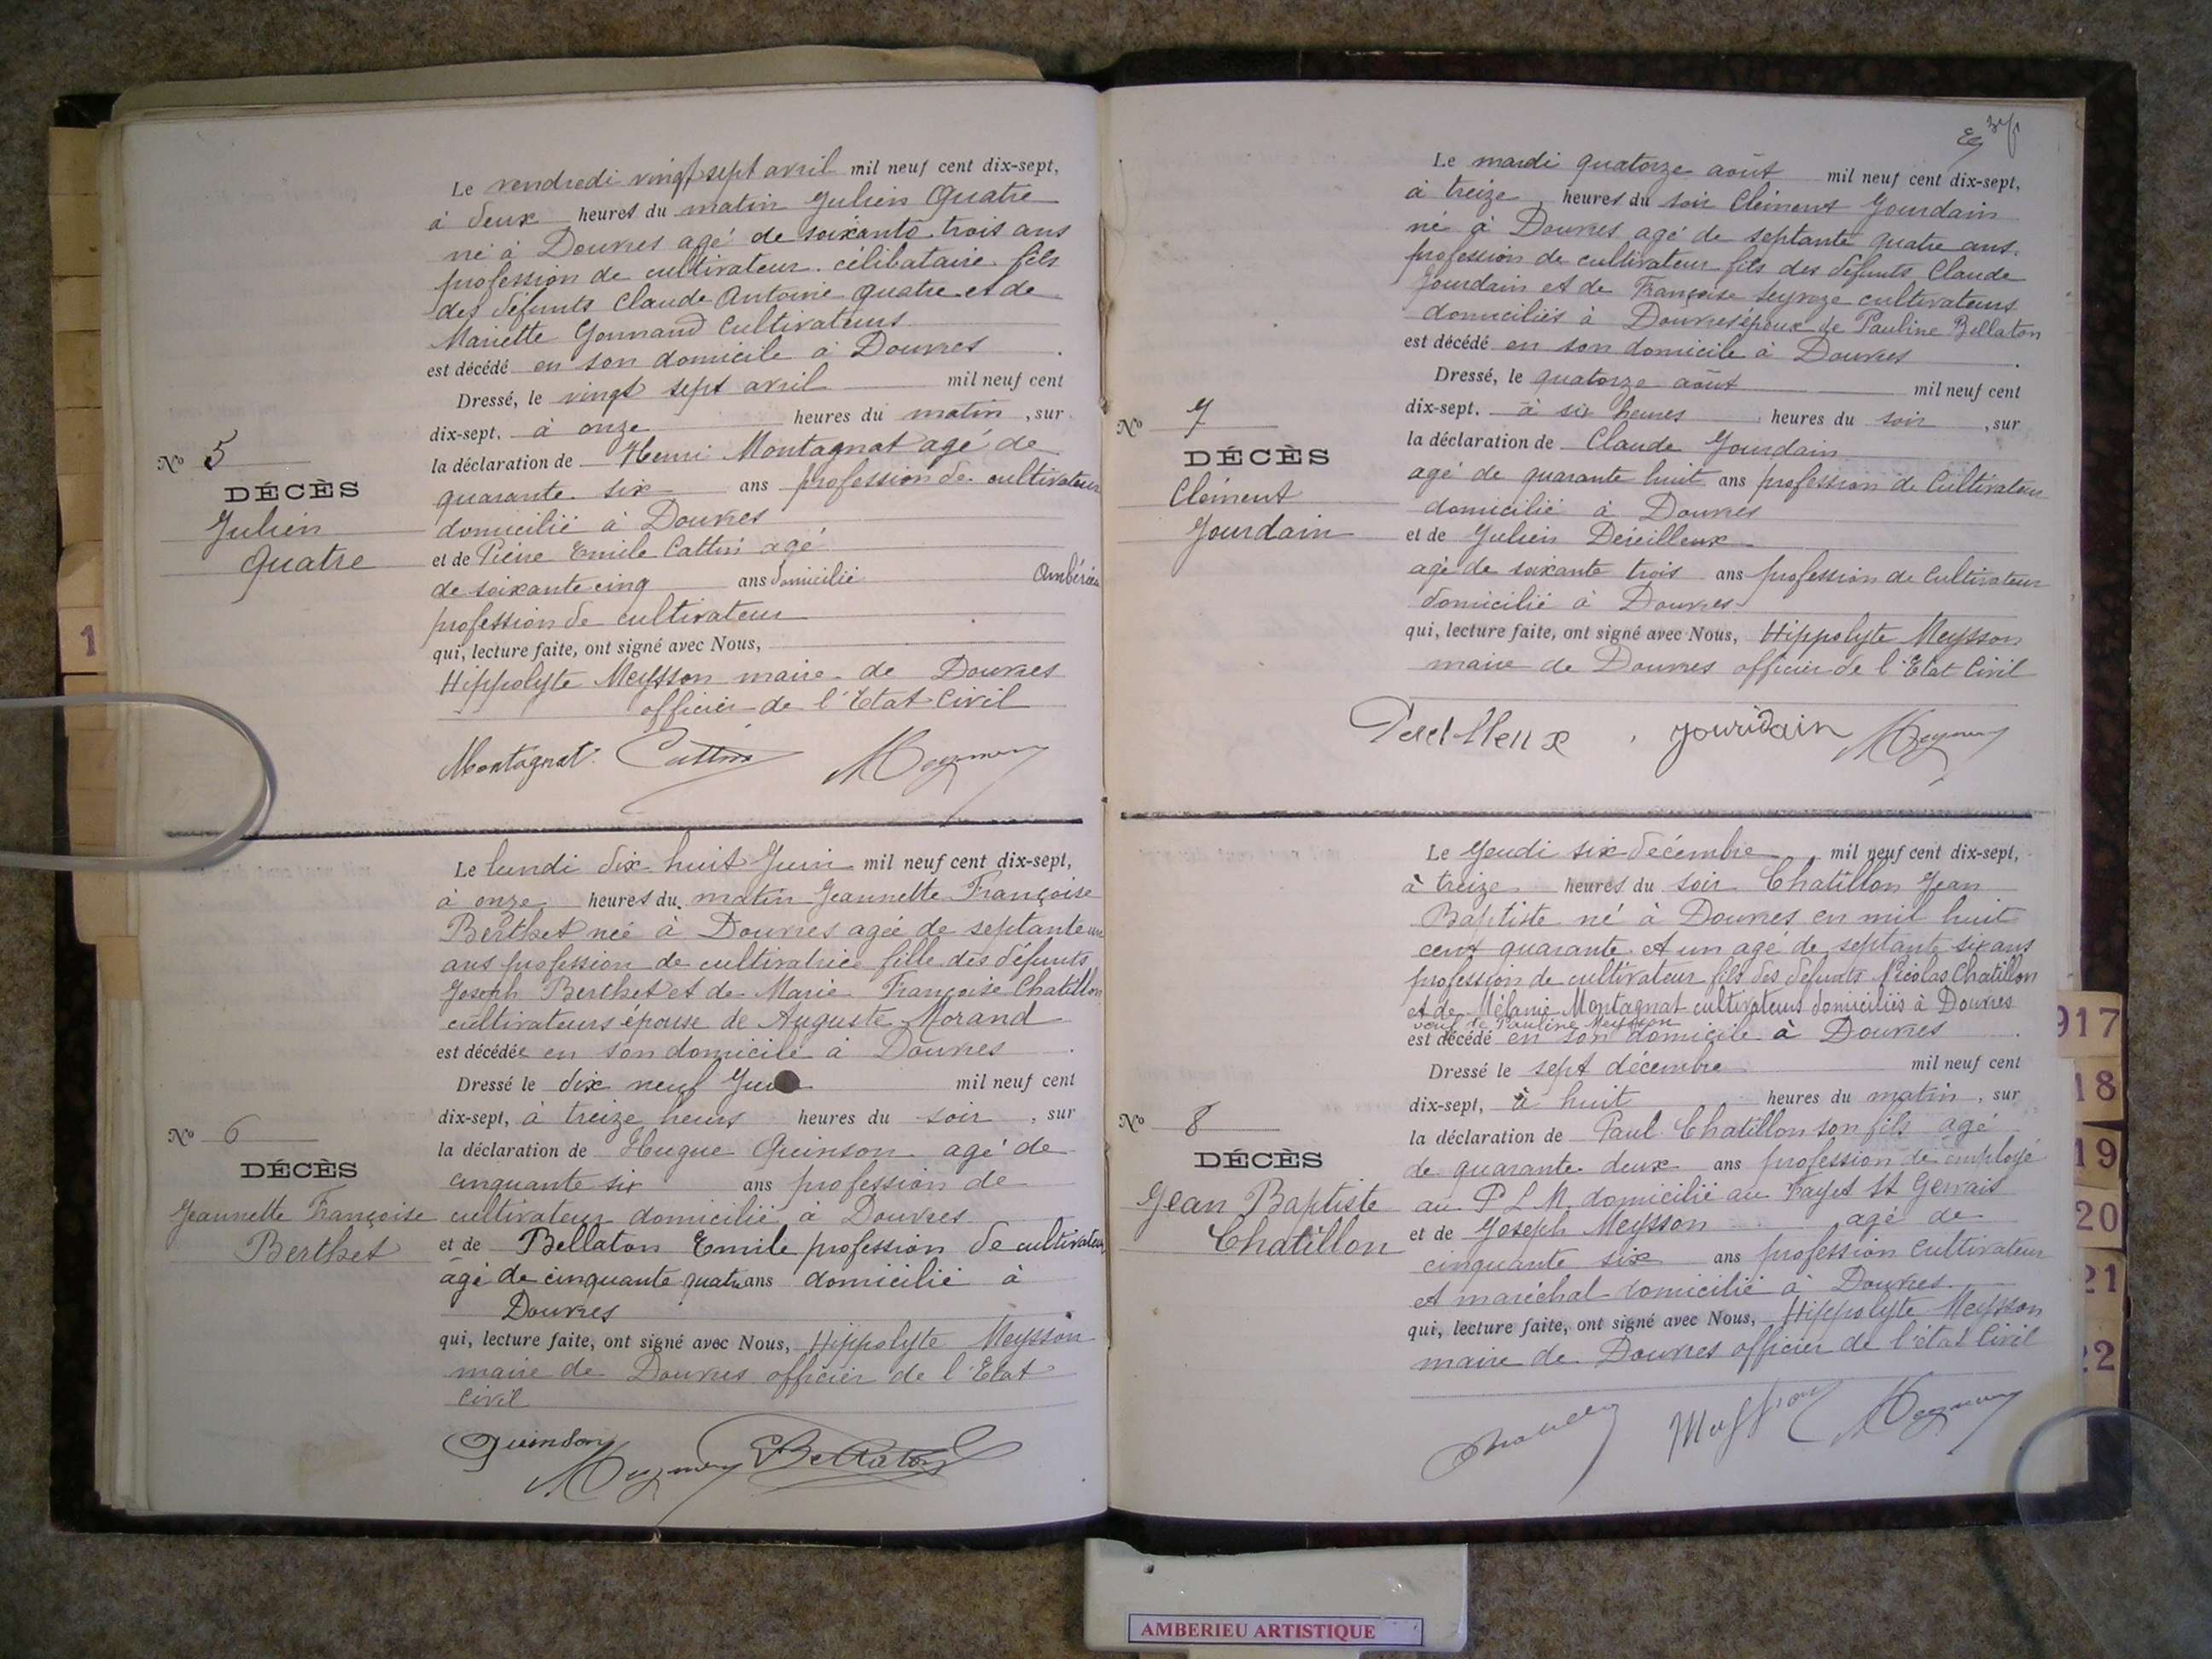 Le vendredi vingt sept avril mil neuf cent dix-sept,
à deux heures du matin Julien Quatre
né à Douvres agé de soixante trois ans
profession de cultivateur célibataire fils
des défunts Claude Antoine Quatre et de
Mariette Gonnand Cultivateurs
est décédé en son domicile à Douvres
Dressé, le vingt sept avril mil neuf cent
dix-sept, à onze heures du matin, sur
la déclaration de Henri Montagnat agé de
quarante six ans profession de cultivateur
domicilié à Douvres
et de Pierre Emile Cattin agé
de soixante cinq ans domicilié Ambérieu
profession de cultivateur
qui, lecture faite, ont signé avec Nous,
Hippolyte Meysson maire de Douvres
officier de l'Etat Civil
Montagnat Cattin
N° 5
DÉCÈS
Julien
Quatre
Le lundi dix huit Juin mil neuf cent dix-sept,
à onze heures du matin Jeannette Françoise
Berthet née à Douvres agée de septante un
ans profession de cultivatrice fille des défunts
Joseph Berthet et de Marie Françoise Chatillon
cultivateurs épouse de Auguste Morand
est décédée en son domicile à Douvres
Dressé le dix neuf mil neuf cent
dix-sept, à treize heures heures du soir, sur
la déclaration de Hugue Quinson agé de
cinquante six ans profession de
cultivateur domicilié à Douvres
et de Bellaton Emile profession de cultivateur
âgé de cinquante quatre ans domicilié à
Douvres
qui, lecture faite, ont signé avec Nous, Hippolyte Meysson
maire de Douvres officier de l'Etat
Civil
Quinson
EBellaton
N° 6
DÉCÈS
Jeannette Françoise
Berthet
Le mardi quatorze août mil neuf cent dix-sept,
à treize heures du soir Clément Jourdain
né à Douvres agé de septante quatre ans.
profession de cultivateur fils des défunts Claude
Jourdain et de Françoise cultivateurs
domiciliés à Douvres époux de Pauline Bellaton
est décédé en son domicile à Douvres
Dressé, le quatorze août mil neuf cent
dix-sept, à six heures heures du soir, sur
la déclaration de Claude Jourdain
agé de quarante huit ans profession de Cultivateur
domicilié à Douvres
et de Julien Déreilleux
agé de soixante trois ans profession de Cultivateur
domicilié à Douvres
qui, lecture faite, ont signé avec Nous, Hippolyte Meysson
maire de Douvres officier de l'Etat Civil
jourdain
N° 7
DÉCÈS
Clément
Jourdain
Le Jeudi six décembre mil neuf cent dix-sept,
à treize heures du soir Chatillon Jean
Baptiste né à Douvres en mil huit
cent quarante et un agé de septante six ans
profession de cultivateur fils des défunts Nicolas Chatillon
et de Mélanie Montagnat cultivateurs domiciliés à Douvres
veuf de Pauline Meysson
est décédé en son domicile à Douvres
Dressé le sept décembre mil neuf cent
dix-sept, à huit heures du matin, sur
la déclaration de Paul Chatillon son fils agé
de quarante deux ans profession de employé
au P L M domicilié au Fayet St Gervais
et de Joseph Meysson agé de
cinquante six ans profession cultivateur
et maréchal domicilié à Douvres
qui, lecture faite, ont signé avec Nous, Hippolyte Meysson
maire de Douvres officier de l'état Civil
N° 8
DÉCÈS
Jean Baptiste
Chatillon
1
917
18
19
20
21
22
AMBERIEU ARTISTIQUE